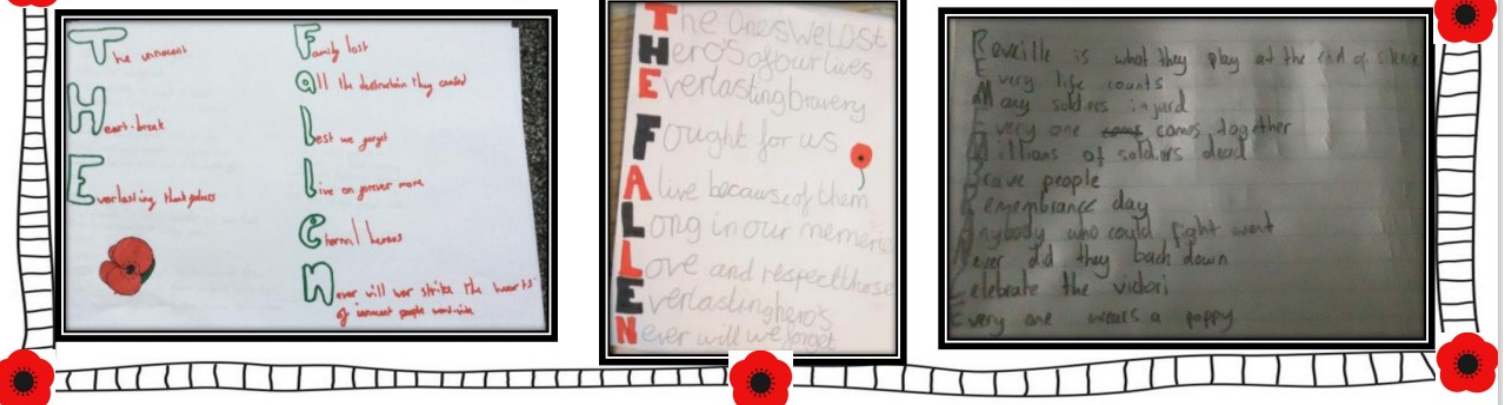 The innocent
Heart-break
Everlasting thankfulness
Family lost
all the destruction they caused
Lest we forget
live on forever more
eternal heroes
Never will war strike the hearts
of innocent people world-wide
The Ones We Lost
Hero's of our lives
Everlasting bravery
Fought for us
Alive because of them
Long in our memerie
Love and respect those
Everlasting hero's
Never will we forget
Reveille is what they play at the end of silence
Every life counts
Many soldiers injard
Every one coms together
Millions of soldiers dead
Brave people
Remembrance day
Anybody who could fight went
Never did they back down
Celebrate the victori
Every one wears a poppy